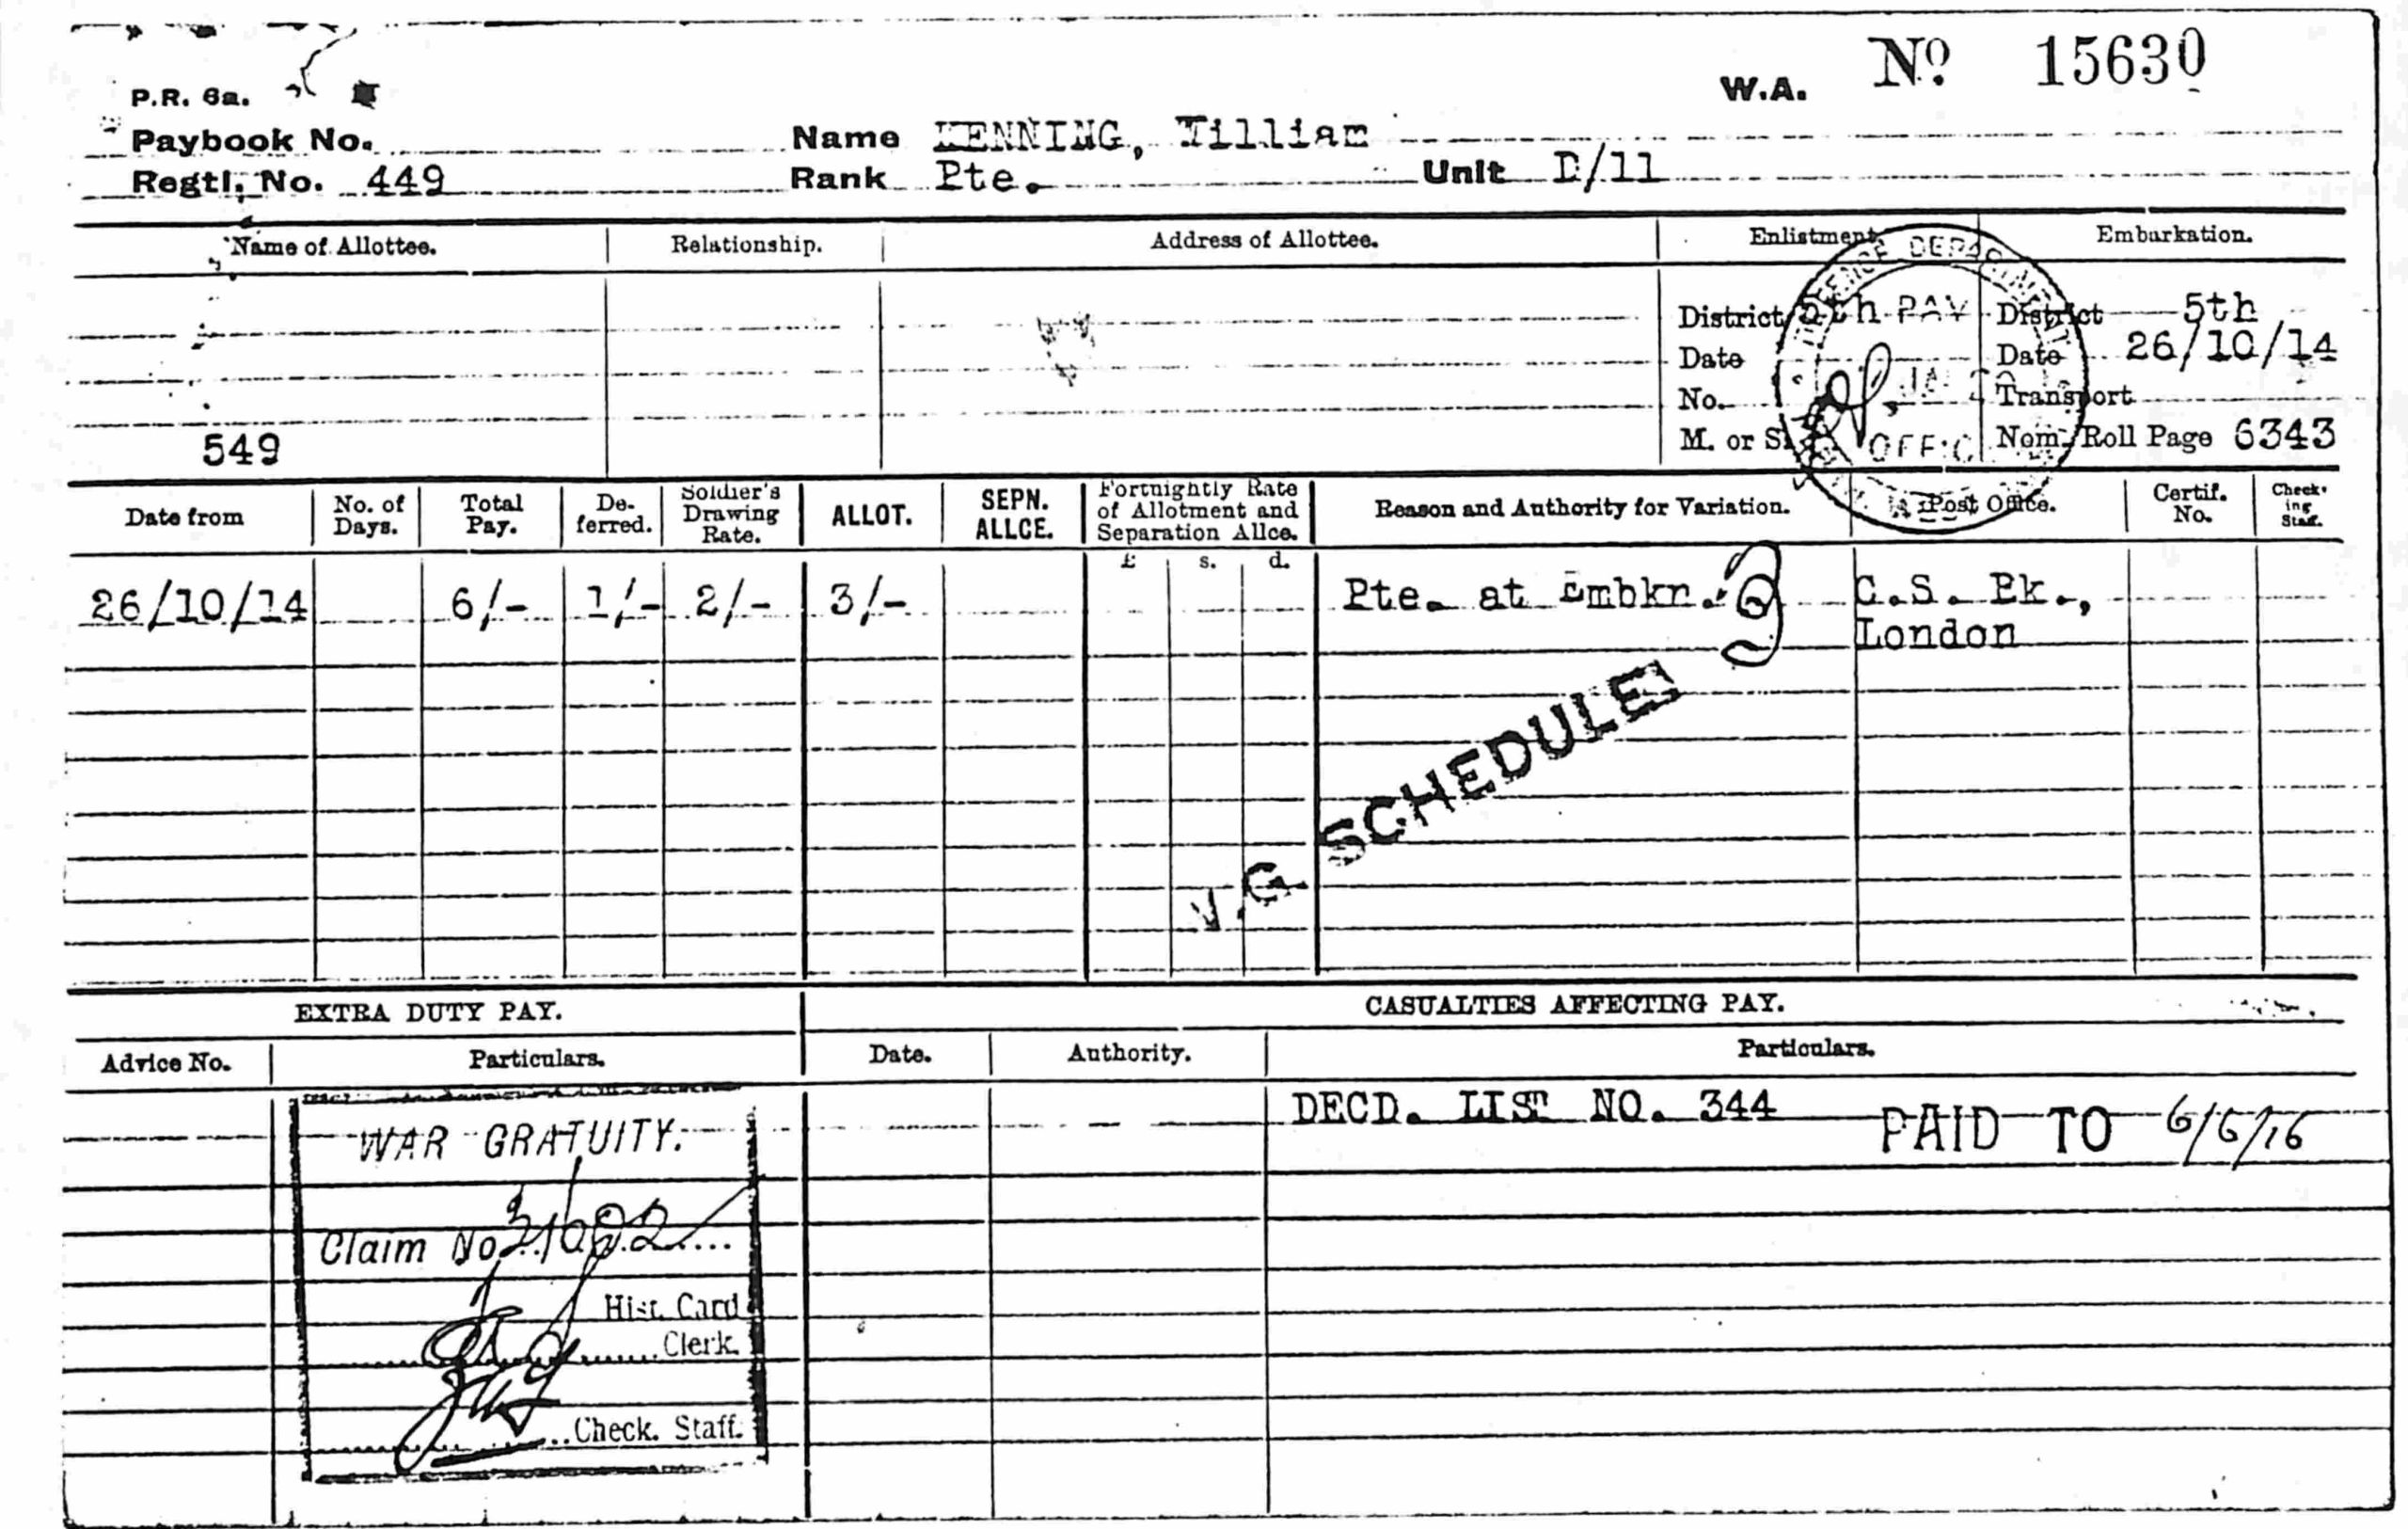 W.A. No. 15630
P.R. 6a.
Paybook No. Name KENNING, William
Regtl. No. 449 Rank Pte. Unit D/11
Name of Allottee. Relationship. Address of Allottee. Enlistment Embarkation.
DEFENCE DEPARTMENT
District 5th PAY District 5th
Date Date 26/10/14
No. Transport
549 M. or S. OFFIC Nom. Roll Page 6343
Date from No. of Days. Total Pay. De-ferred. Soldier's Drawing Rate. ALLOT. SEPN. ALLCE. Fortnightly Rate of Allotment and Separation Allce. Reason and Authority for Variation. Post Office. Certif. No. Check-ing Staff.
£ s. d.
26/10/14 6/- 1/- 2/- 3/- Pte. at Embkn. C.S. Bk.,
London
W.G. SCHEDULE
EXTRA DUTY PAY. CASUALTIES AFFECTING PAY.
Advice No. Particulars. Date. Authority. Particulars.
DECD. LIST NO. 344 PAID TO 6/6/16
WAR GRATUITY.
Claim No
Hist. Card
Clerk.
Check. Staff.